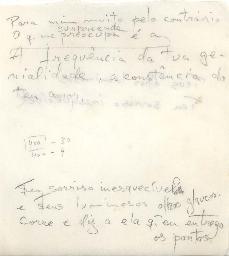 Para mim muito pelo contrário
surpreende
O que preocupa é a
A frequência da tua ge-
nialidade, a constância do
teu amor
1500 - 30
Teu sorriso inesquecível
e seus luminosos olhos
corre e diz a ela q. eu entrego
os pontos